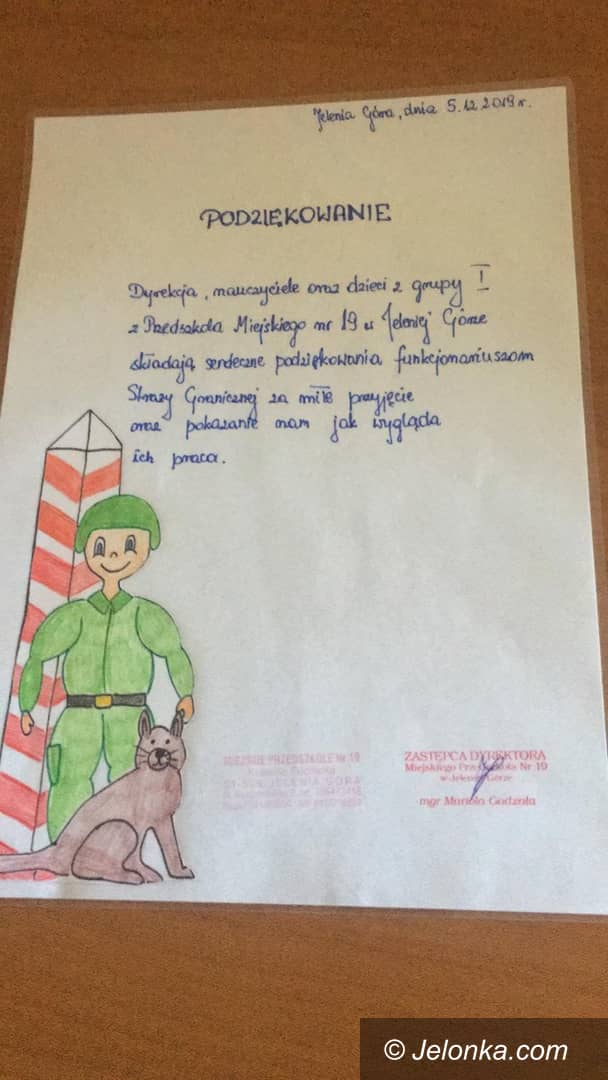 Jelenia Góra, dnia 5.12.2019r.
PODZIĘKOWANIE
Dyrekcja, nauczyciele oraz dzieci z grupy I
z Przedszkola Miejskiego nr 19 w Jeleniej Górze
składają serdeczne podziękowania funkcjonariuszom
Straży Granicznej za miłe przyjęcie
oraz pokazanie nam jak wygląda
ich praca.
MIEJSKIE PRZEDSZKOLE Nr 19
JELENIA GÓRA
ZASTĘPCA DYREKTORA
Miejskiego Przedszkola Nr 19
w Jeleniej Górze
mgr Mariola Godzola
© Jelonka.com